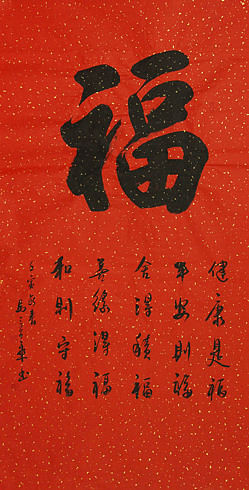 福
健康是福
平安則福
舍得積福
善緣得福
和則守福